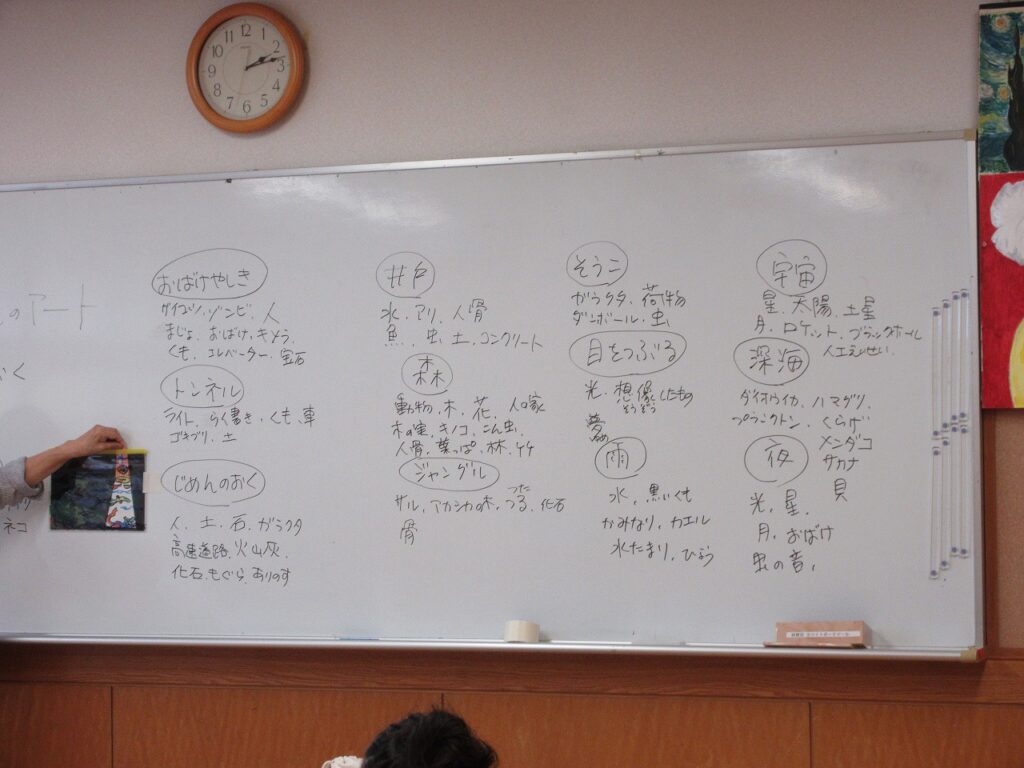 12
1
2
3
4
5
6
7
8
9
10
11
のアート
く
ネコ
おばけやしき
ガイコツ、ゾンビ、人
まじょ、おばけ、キメラ
くも、エレベーター、宝石
トンネル
ライト、らく書き、くも、車
ゴキブリ、土
じめんのおく
人、土、石、ガラクタ
高速道路、火山灰、
化石、もぐら、ありのす
井戸
水、アリ、人骨
魚、虫、土、コンクリート
森
動物、木、花、人口家
木の実、キノコ、こん虫、
人骨、葉っぱ、林、竹
ジャングル
つた
サル、アカシカの木、つる、化石
骨
そうこ
ガラクタ、荷物
ダンボール、虫
目をつぶる
光、想像したもの
そうぞう
夢
雨
水、黒いくも
かみなり、カエル
水たまり、ひょう
宇宙
星、太陽、土星
月、ロケット、ブラックホール
人工えいせい
深海
ダイオウイカ、ハマグリ、
プランクトン、くらげ
メンダコ
サカナ
貝
夜
光、星、
月、おばけ
虫の音、